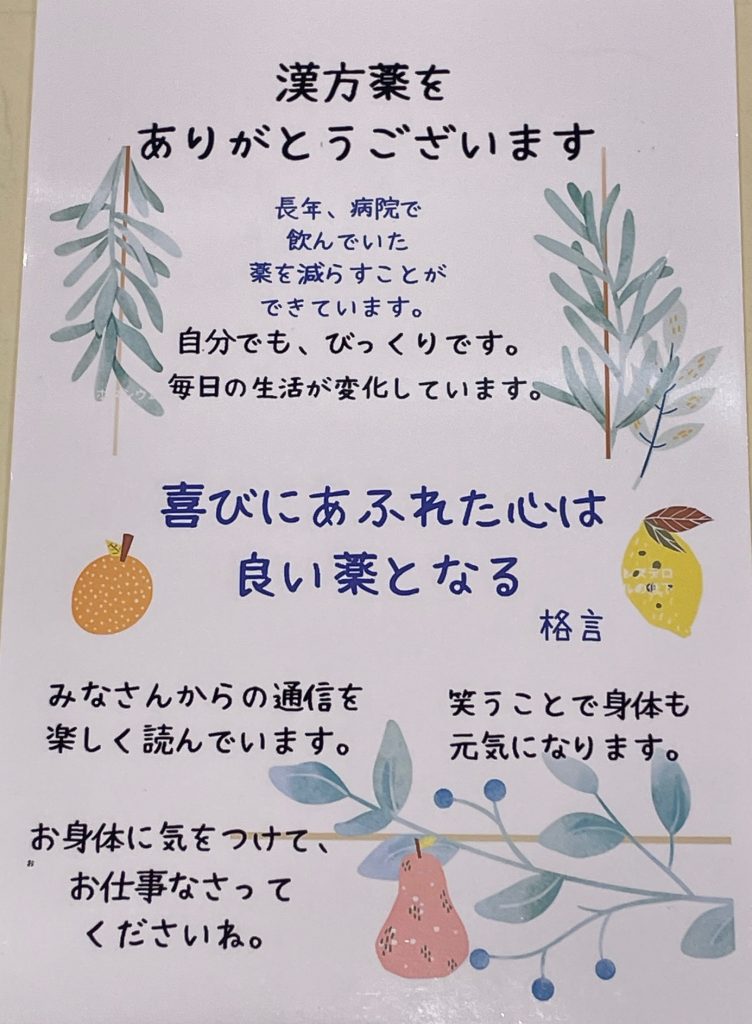 漢方薬を
ありがとうございます
長年、病院で
飲んでいた
薬を減らすことが
できています。
自分でも、びっくりです。
毎日の生活が変化しています。
喜びにあふれた心は
良い薬となる
格言
みなさんからの通信を
楽しく読んでいます。
笑うことで身体も
元気になります。
お身体に気をつけて、
お
お仕事なさって
くださいね。